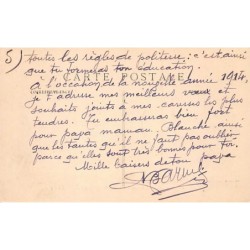 5) toutes les règles de politesse : c'est ainsi
que tu formeras ton éducation.
CARTE POSTALE
A l'occasion de la nouvelle année 1914,
je t'adresse mes meilleurs vœux et
souhaits joints à mes caresses les plus
tendres. Tu embrasseras bien fort
pour papa maman. Blanche ainsi
que les tantes qu'il ne faut pas oublier
parce qu'elles sont très bonnes pour toi.
Mille baisers de ton papa